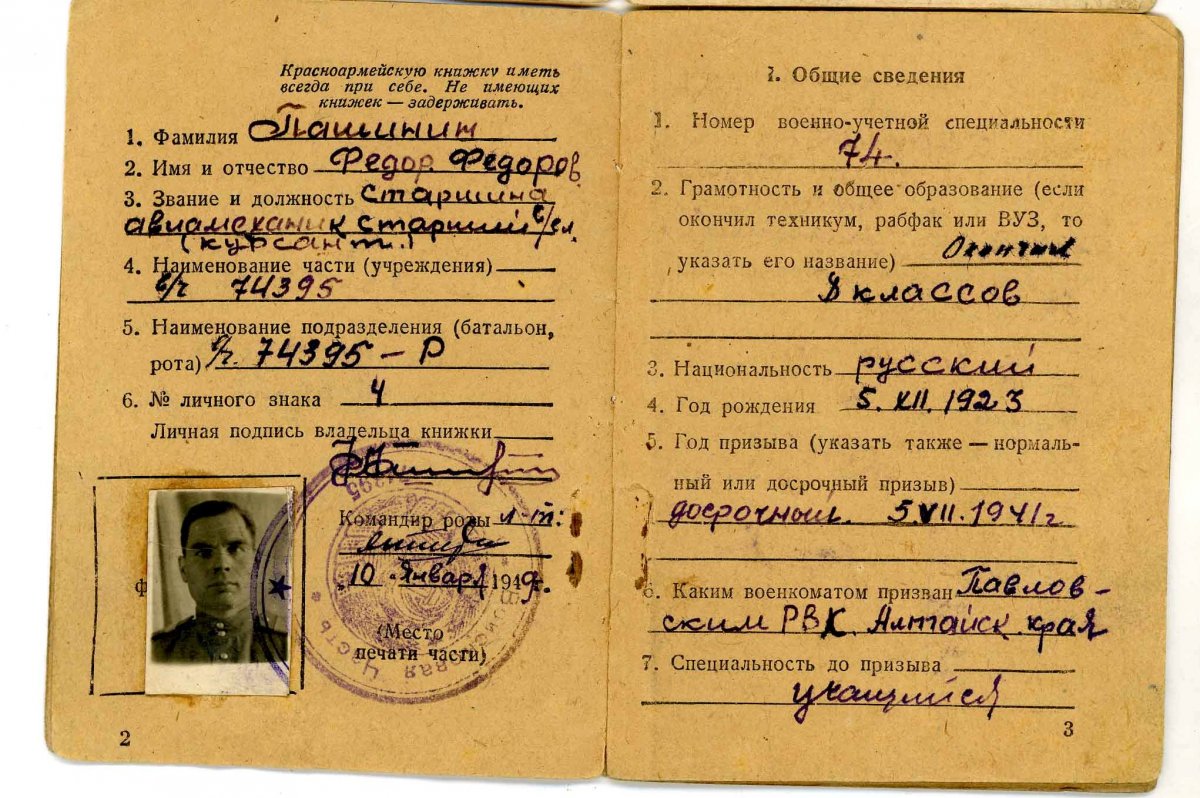 Красноармейскую книжку иметь
всегда при себе. Не имеющих
книжек — задерживать.
1. Фамилия Пашинин
2. Имя и отчество Федор Федоров
3. Звание и должность старшина
авиамеханик старший с/сл
(курсант.)
4. Наименование части (учреждения)
в/ч 74395
5. Наименование подразделения (батальон,
рота) в/ч. 74395 – Р
6. № личного знака 4
Личная подпись владельца книжки
Командир роты л-т:
10 января 1949.
(Место
печати части)
ф
74395
Войсковая Часть
2
I. Общие сведения
1. Номер военно-учетной специальности
74.
2. Грамотность и общее образование (если
окончил техникум, рабфак или ВУЗ, то
указать его название) Окончил
8 классов
3. Национальность русский
4. Год рождения 5. XII. 1923
5. Год призыва (указать также — нормаль-
ный или досрочный призыв)
досрочный. 5.VII.1941г
6. Каким военкоматом призван Павлов-
ским РВК. Алтайск. края
7. Специальность до призыва
учащийся
3